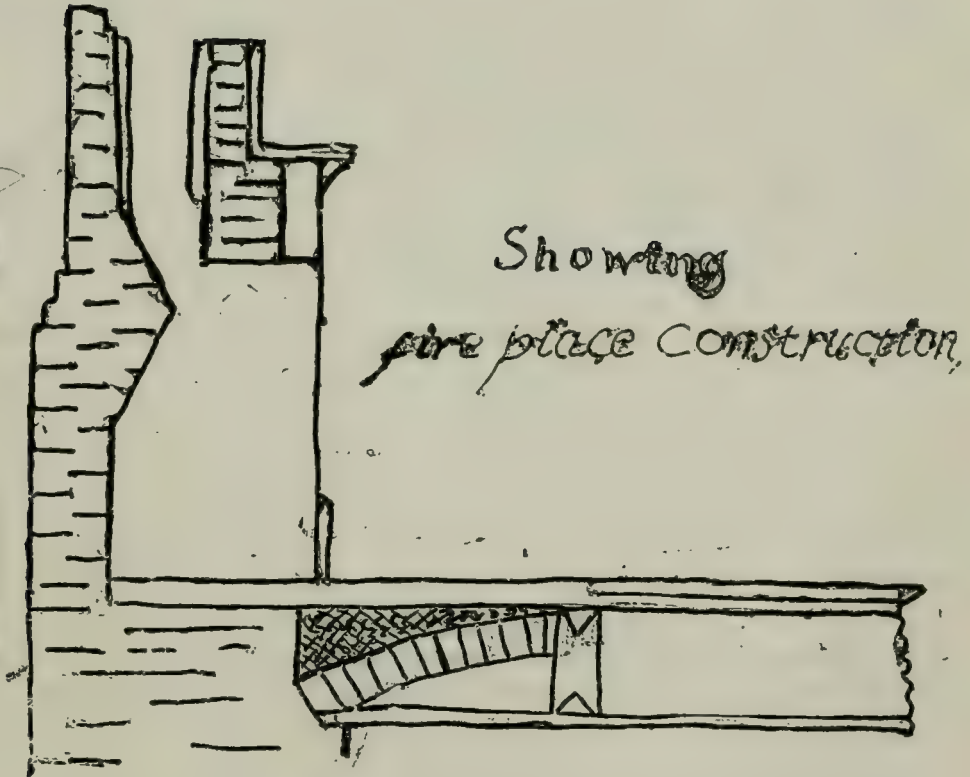 Showing
fire place Construction